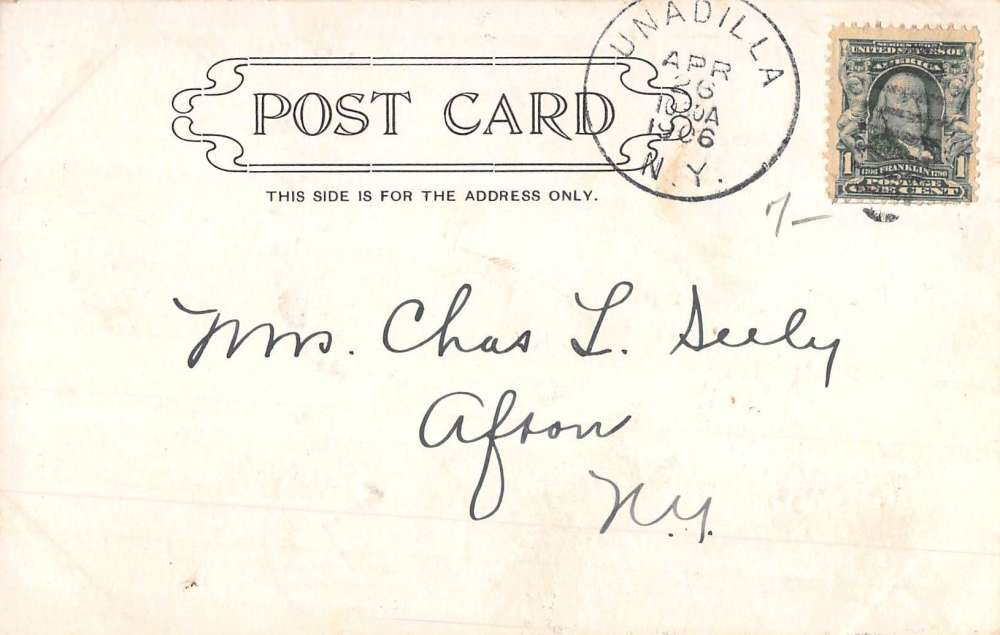 POST CARD
THIS SIDE IS FOR THE ADDRESS ONLY.
UNADILLA
APR
26
1906
N.Y.
SERIES 1902
UNITED STATES OF
AMERICA
1706 FRANKLIN 1790
1 1
POSTAGE
ONE CENT
7-
Mrs. Chas L. Seely
Afton
N.Y.